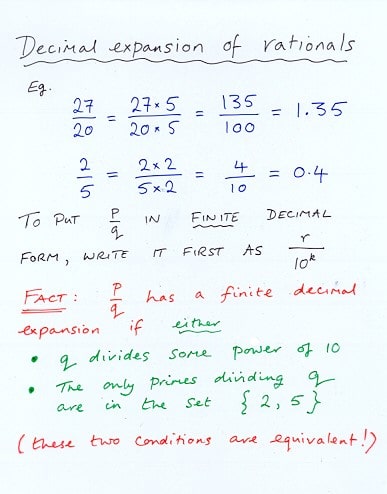 Decimal expansion of rationals
Eg.
27/20 = 27×5/20×5 = 135/100 = 1.35
2/5 = 2×2/5×2 = 4/10 = 0.4
TO PUT p/q IN FINITE DECIMAL
FORM, WRITE IT FIRST AS r/10^k
FACT: p/q has a finite decimal
expansion if either
• q divides some power of 10
• The only primes dividing q
are in the set {2, 5}
(these two conditions are equivalent!)